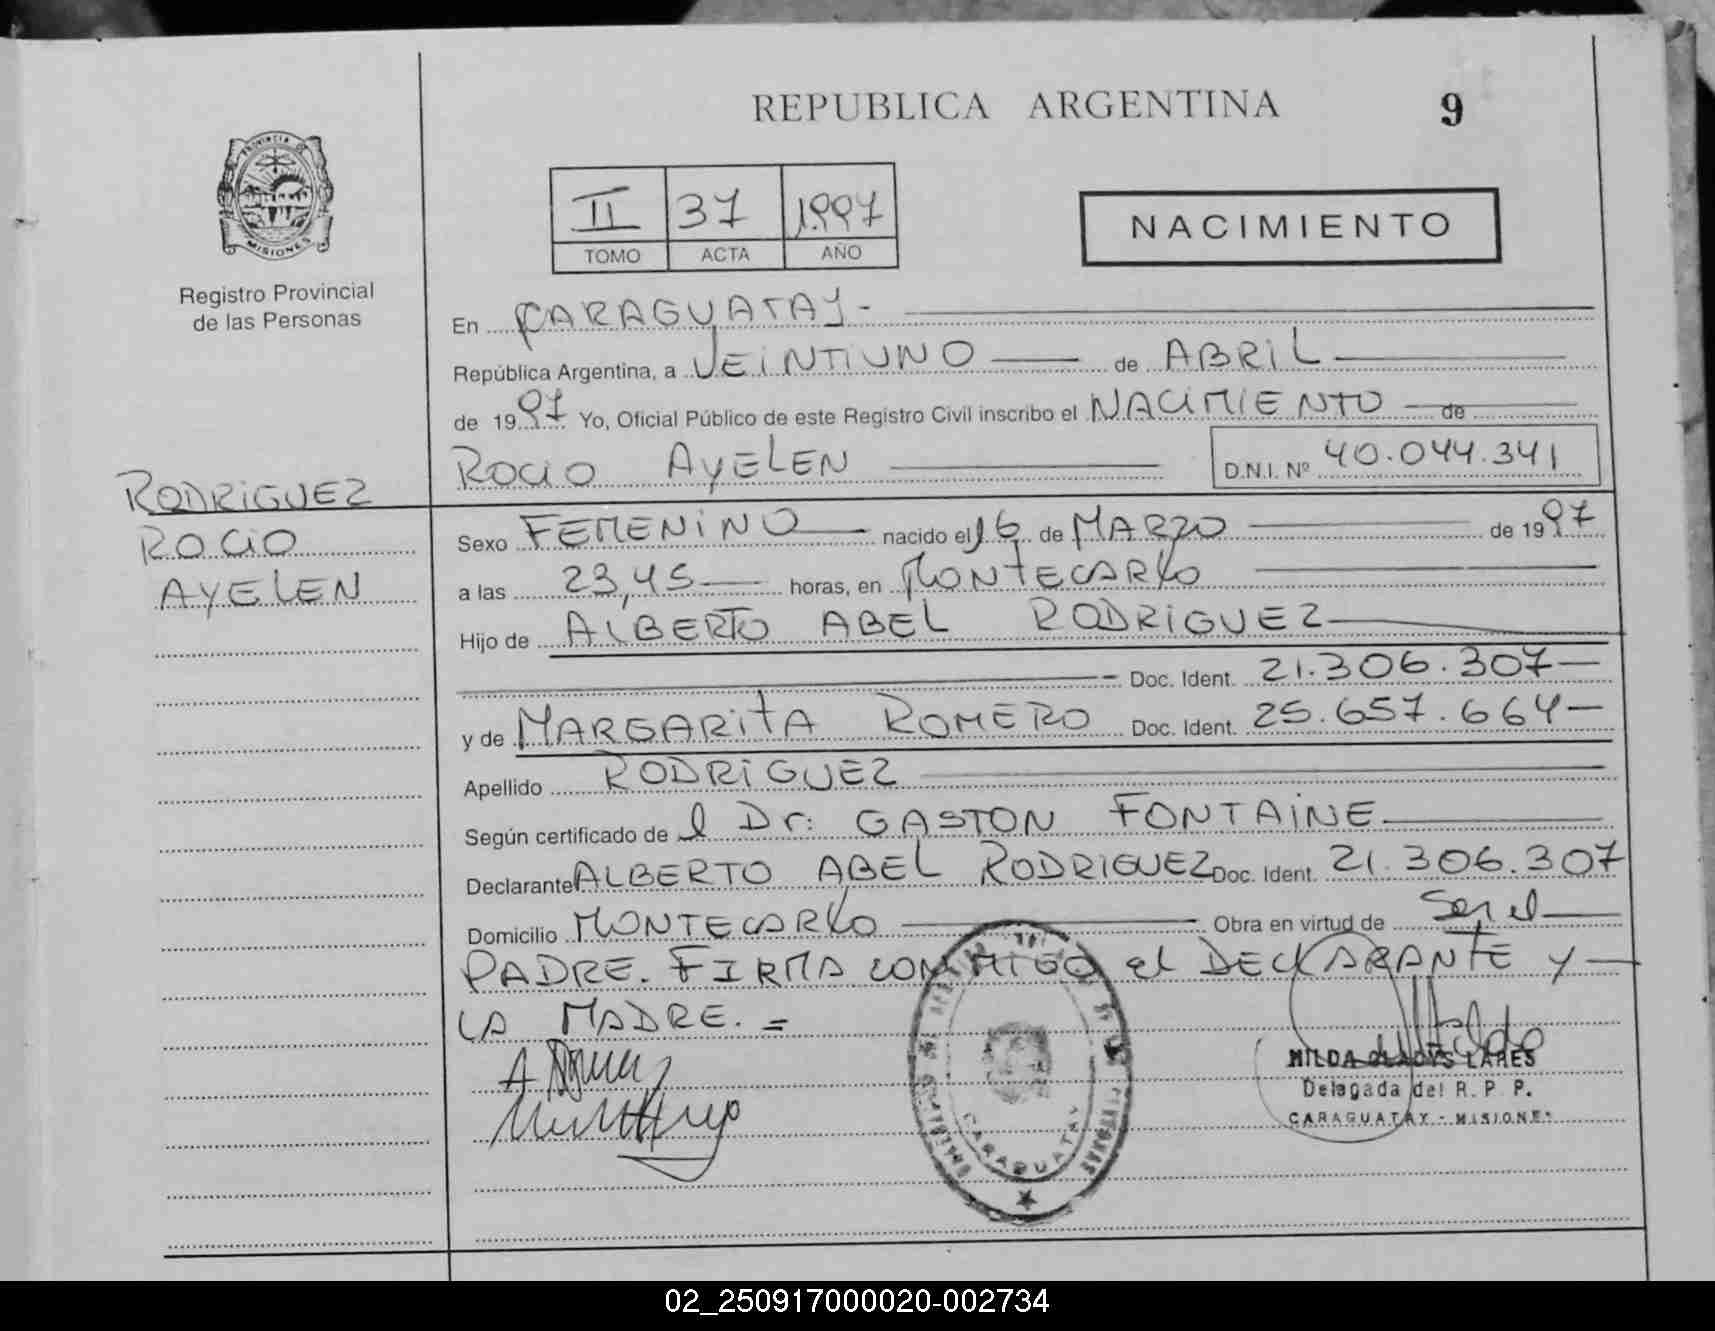 REPUBLICA ARGENTINA
9
PROVINCIA DE
MISIONES
Registro Provincial
de las Personas
II 37 1997
TOMO ACTA AÑO
NACIMIENTO
En CARAGUATAY-
República Argentina, a VEINTIUNO de ABRIL
de 1997 Yo, Oficial Público de este Registro Civil inscribo el NACIMIENTO de
ROCIO AYELEN D.N.I. Nº 40.044.341
RODRIGUEZ
ROCIO
AYELEN
Sexo FEMENINO nacido el 16 de MARZO de 1997
a las 23,45 horas, en MONTECARLO
Hijo de ALBERTO ABEL RODRIGUEZ
Doc. Ident. 21.306.307-
y de MARGARITA ROMERO Doc. Ident. 25.657.664-
Apellido RODRIGUEZ
Según certificado de l Dr: GASTON FONTAINE
Declarante ALBERTO ABEL RODRIGUEZ Doc. Ident. 21.306.307
Domicilio MONTECARLO Obra en virtud de Ser el
PADRE. FIRMA CONMIGO el DECLARANTE y
LA MADRE. =
CARAGUATAY
MILDA GLADYS LARES
Delegada del R. P. P.
CARAGUATAY - MISIONES
02_250917000020-002734